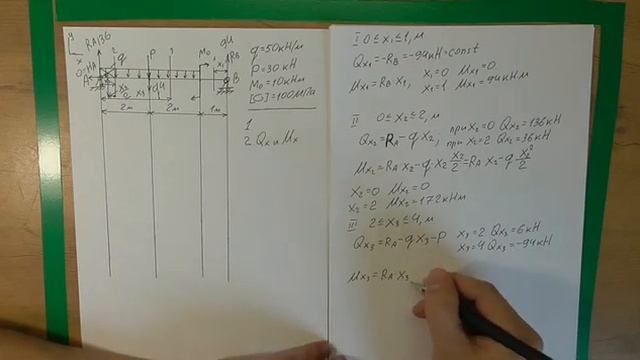 y
x
RA 136
94
RB
2
q
P
3
M₀
x₁
0
HA
A
B
x₂
x₃
2м
2м
1м
q=50кН/м
P=30кН
M₀=10кНм
[σ]=100МПа
1
2 Qx и Mx
I 0≤x₁≤1,м
Qx₁=-RB=-94кН=const
Mx₁=RB x₁, x₁=0 Mx₁=0
x₁=1 Mx₁=94кНм
II 0≤x₂≤2,м
Qx₂=RA-q x₂; при x₂=0 Qx₂=136кН
при x₂=2 Qx₂=36кН
Mx₂=RA·x₂-q·x₂ x₂/2=RA x₂-q x₂²/2
x₂=0 Mx₂=0
x₂=2 Mx₂=172кНм
III 2≤x₃≤4,м
Qx₃=RA-qx₃-P x₃=2 Qx₃=6кН
x₃=4 Qx₃=-94кН
Mx₃=RA·x₃